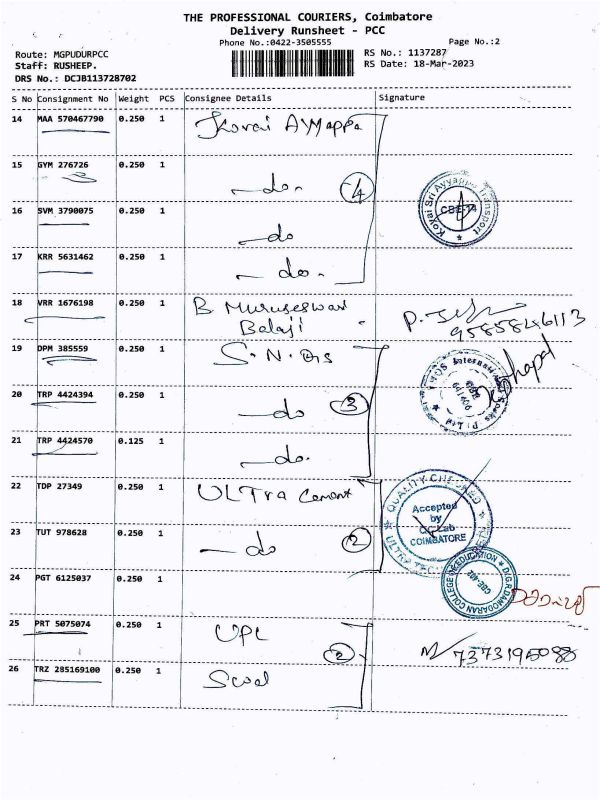 THE PROFESSIONAL COURIERS, Coimbatore
Delivery Runsheet - PCC
Phone No.:0422-3505555 Page No.:2
Route: MGPUDURPCC RS No.: 1137287
Staff: RUSHEEP. RS Date: 18-Mar-2023
DRS No.: DCJB113728702
S No Consignment No Weight PCS Consignee Details Signature
14 MAA 570467790 0.250 1 Kovai Ayyappa
15 GYM 276726 0.250 1 do. 4
Kovai Sri Ayyappa Transport
CBE-14
16 SVM 3790075 0.250 1 do
17 KRR 5631462 0.250 1 do.
18 VRR 1676198 0.250 1 B Muruseswari
Balaji
9585846113
19 DPM 385559 0.250 1 S.N.
20 TRP 4424394 0.250 1 do 3
21 TRP 4424570 0.125 1 do.
22 TDP 27349 0.250 1 ULTra Cement
QUALITY CHECKED
Accepted
by
COIMBATORE
ULTRA
23 TUT 978628 0.250 1 do 2
24 PGT 6125037 0.250 1
D.G.R.DAMODARAN COLLEGE OF EDUCATION
25 PRT 5075074 0.250 1 UPL 2
7373195088
26 TRZ 285169100 0.250 1